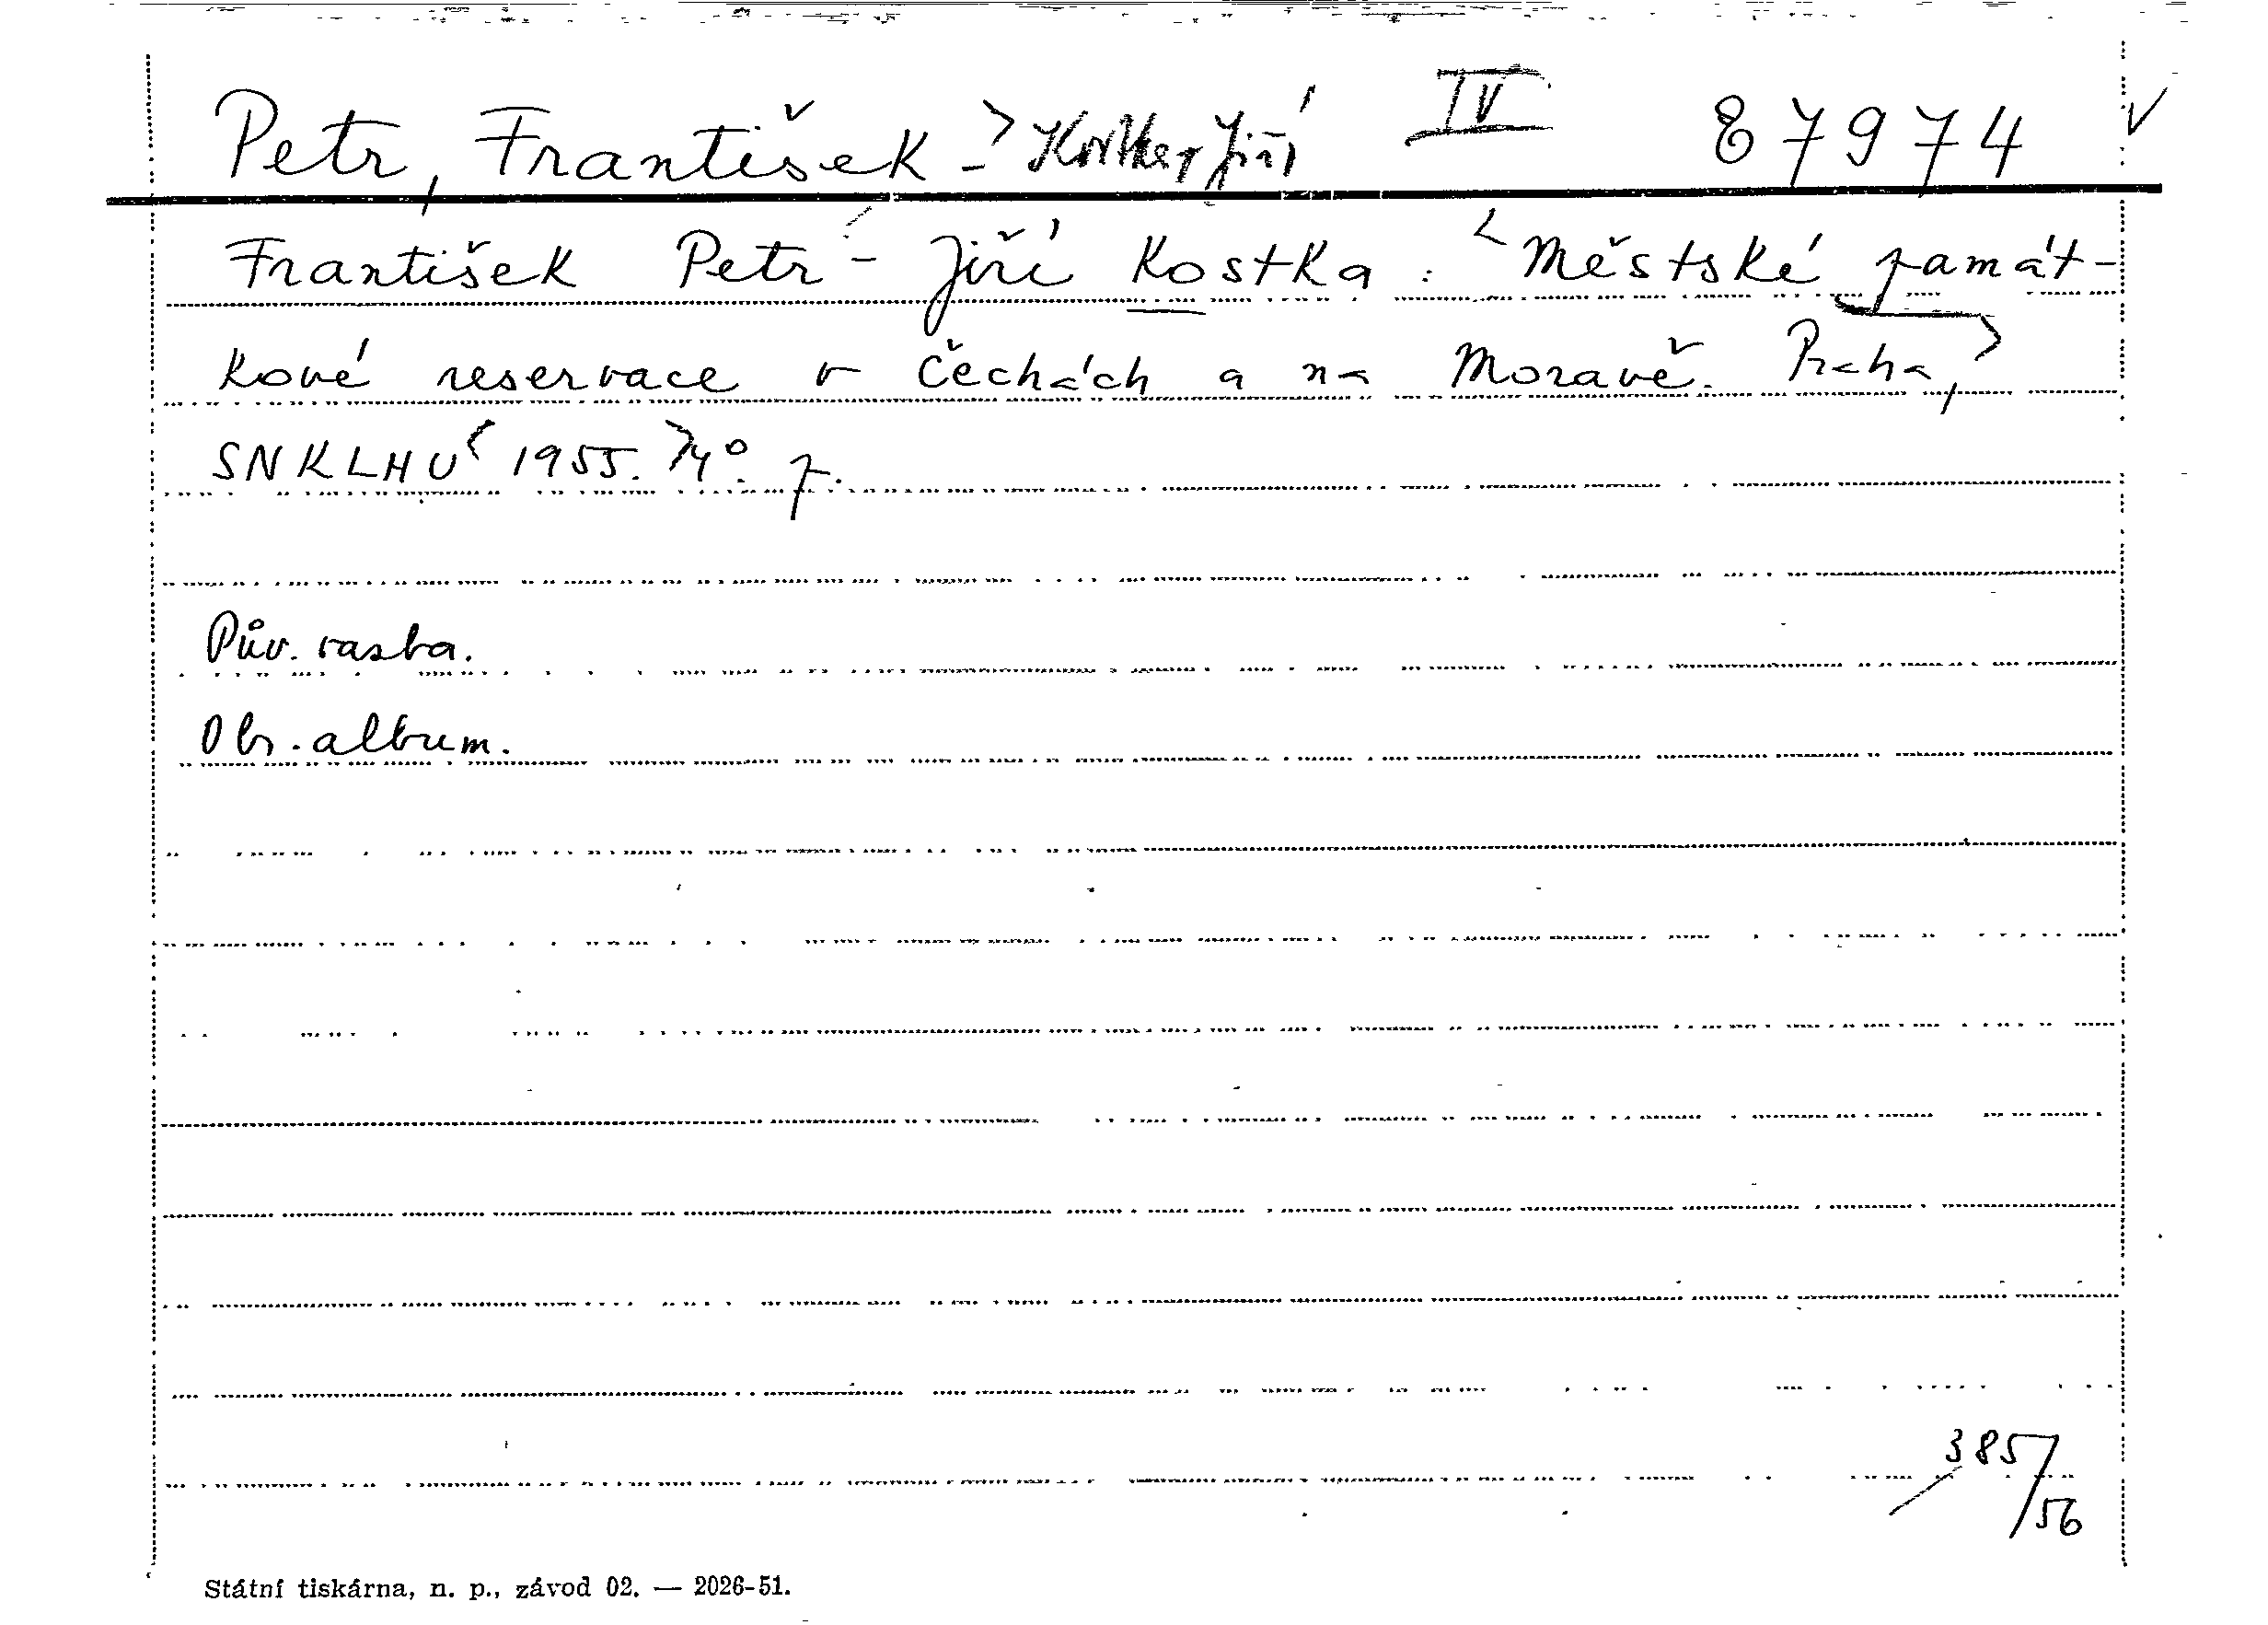 Petr, František - > Kostka, Jiří IV 87974 V
František Petr - Jiří Kostka : < Městské památ-
kové reservace v Čechách a na Moravě. Praha, >
SNKLHU < 1955. > 4° p.
Pův. vazba.
Obr. album.
385/56
Státní tiskárna, n. p., závod 02. — 2026-51.